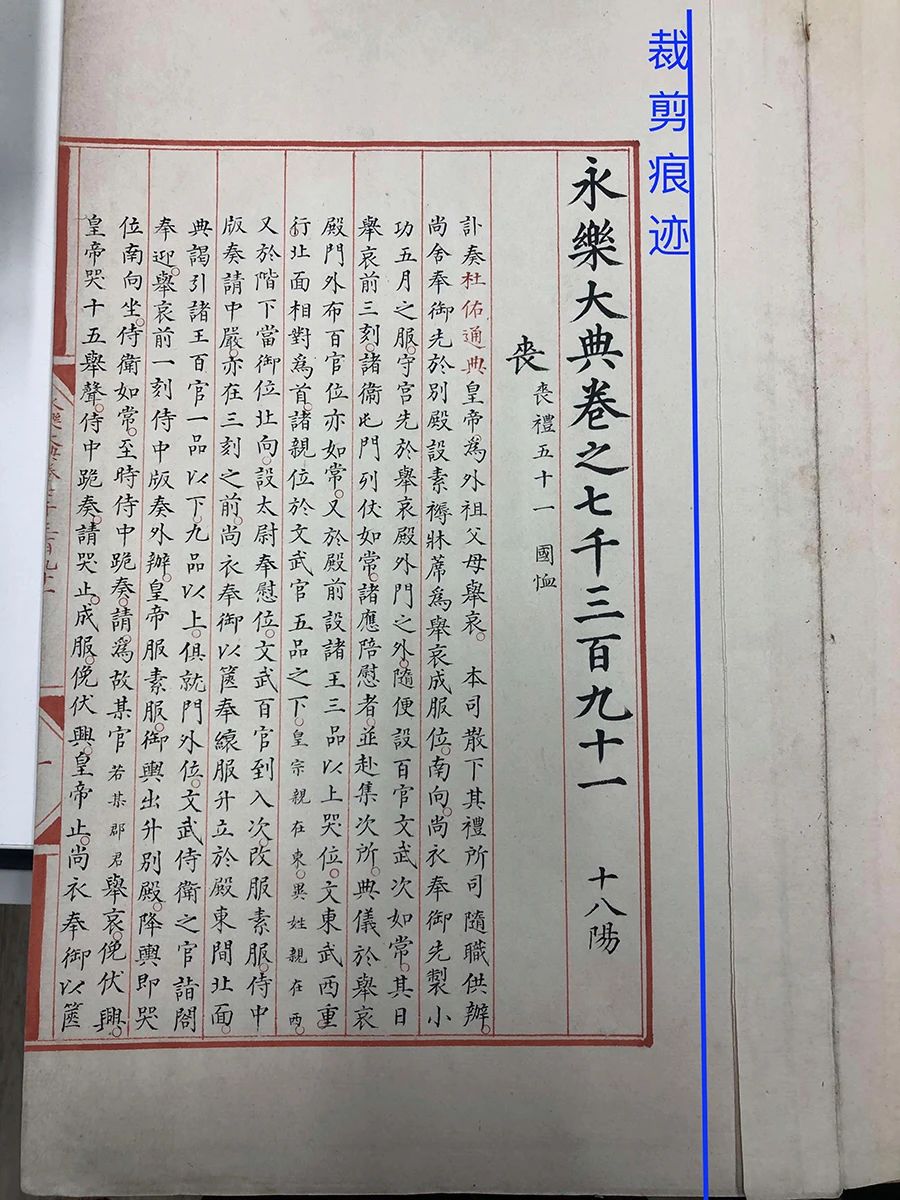 裁剪痕迹
永樂大典卷之七千三百九十一 十八陽
喪 喪禮五十一 國恤
訃奏杜佑通典皇帝爲外祖父母舉哀。本司散下其禮所司隨職供辦。
尚舍奉御先於別殿設素褥牀蓆爲舉哀成服位。南向。尚衣奉御先製小
功五月之服。守宫先於舉哀殿外門之外。隨便設百官文武次如常。其日
舉哀前三刻。諸衞屯門列仗如常。諸應陪慰者。並赴集次所。典儀於舉哀
殿門外布百官位亦如常。又於殿前設諸王三品以上哭位。文東武西重
行北面相對爲首。諸親位於文武官五品之下。皇宗親在東。異姓親在西。
又於階下當御位北向。設太尉奉慰位。文武百官到入次改服素服。侍中
版奏請中嚴。亦在三刻之前。尚衣奉御以篋奉縗服升立於殿東間北面。
典謁引諸王百官一品以下九品以上。俱就門外位。文武侍衛之官詣閤
奉迎。舉哀前一刻侍中版奏外辦。皇帝服素服。御輿出升別殿。降輿即哭
位南向坐。侍衛如常。至時侍中跪奏。請爲故某官若某郡君舉哀。俛伏興。
皇帝哭十五舉聲。侍中跪奏。請哭止。成服。俛伏興。皇帝止。尚衣奉御以篋